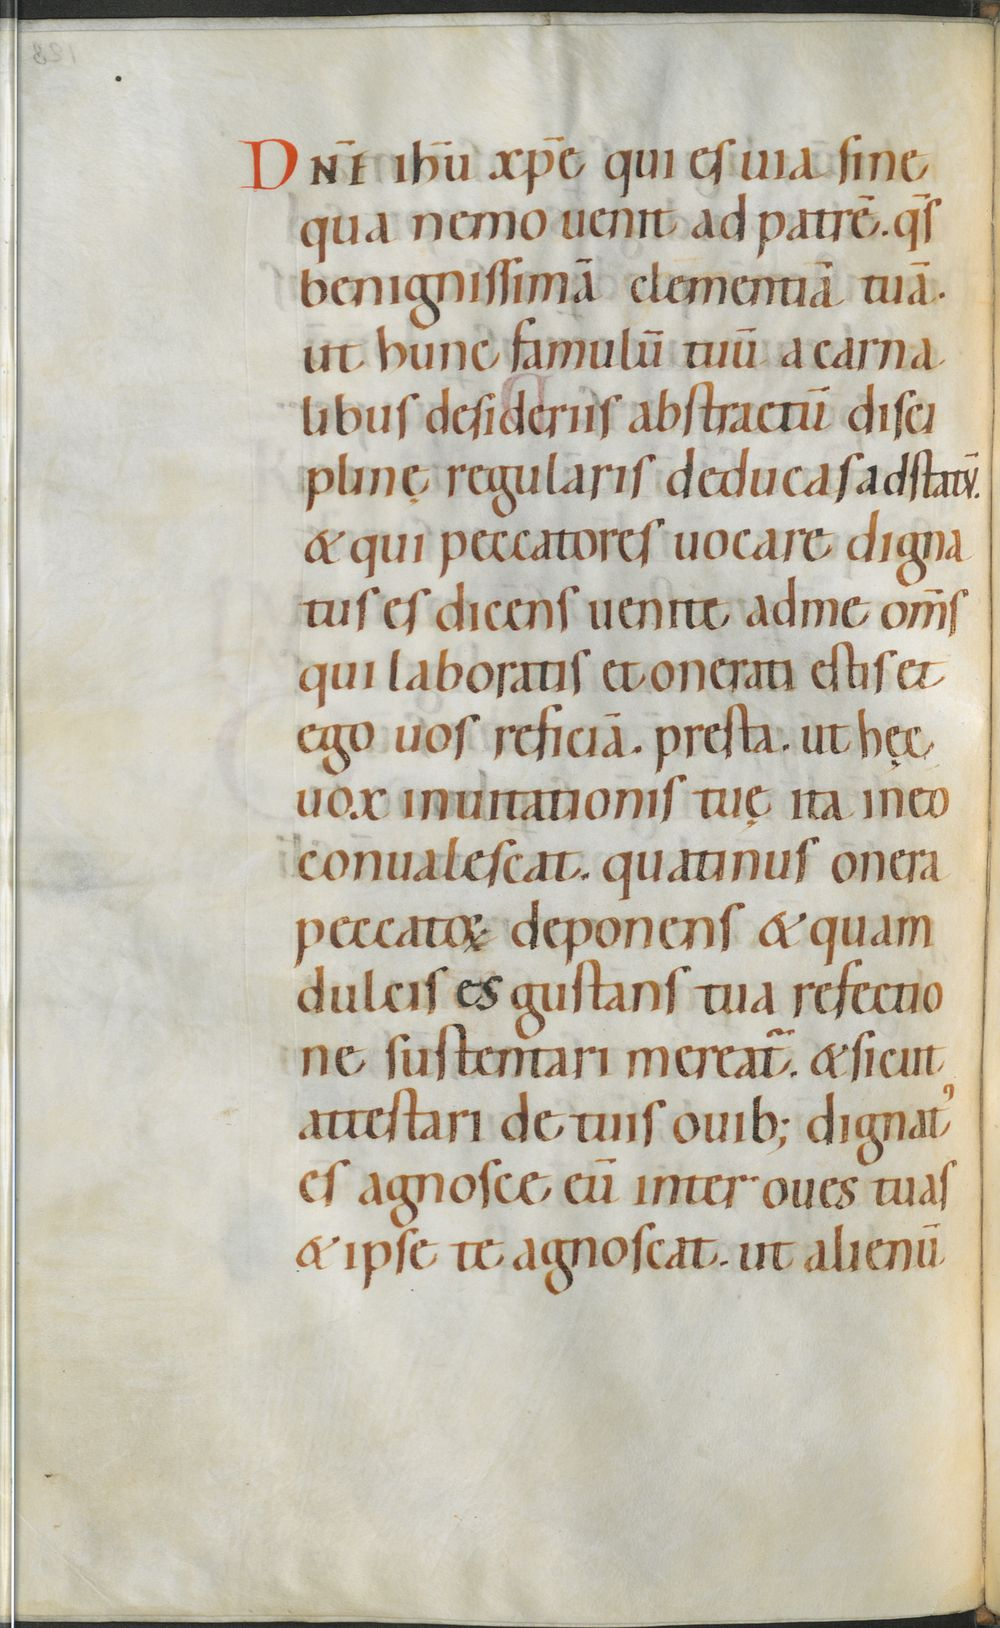 DNE̅ ihu̅ xp̅e qui es uia sine
qua nemo uenit ad patre̅. q̅s
benignissima̅ clementia̅ tua̅.
ut hunc famulu̅ tuu̅ a carna
libus desideriis abstractu̅ disci
plinę regularis deducas ad statu̅.
& qui peccatores uocare digna
tus es dicens uenite ad me om̅s
qui laboratis et onerati estis et
ego uos reficia̅. presta. ut hęc
uox inuitationis tuę ita in eo
conualescat. quatinus onera
peccatoꝝ deponens & quam
dulcis es gustans tua refectio
ne sustentari mereat̅. & sicut
attestari de tuis ouib; dignatꝰ
es agnosce eu̅ inter oues tuas
& ipse te agnoscat. ut alienu̅